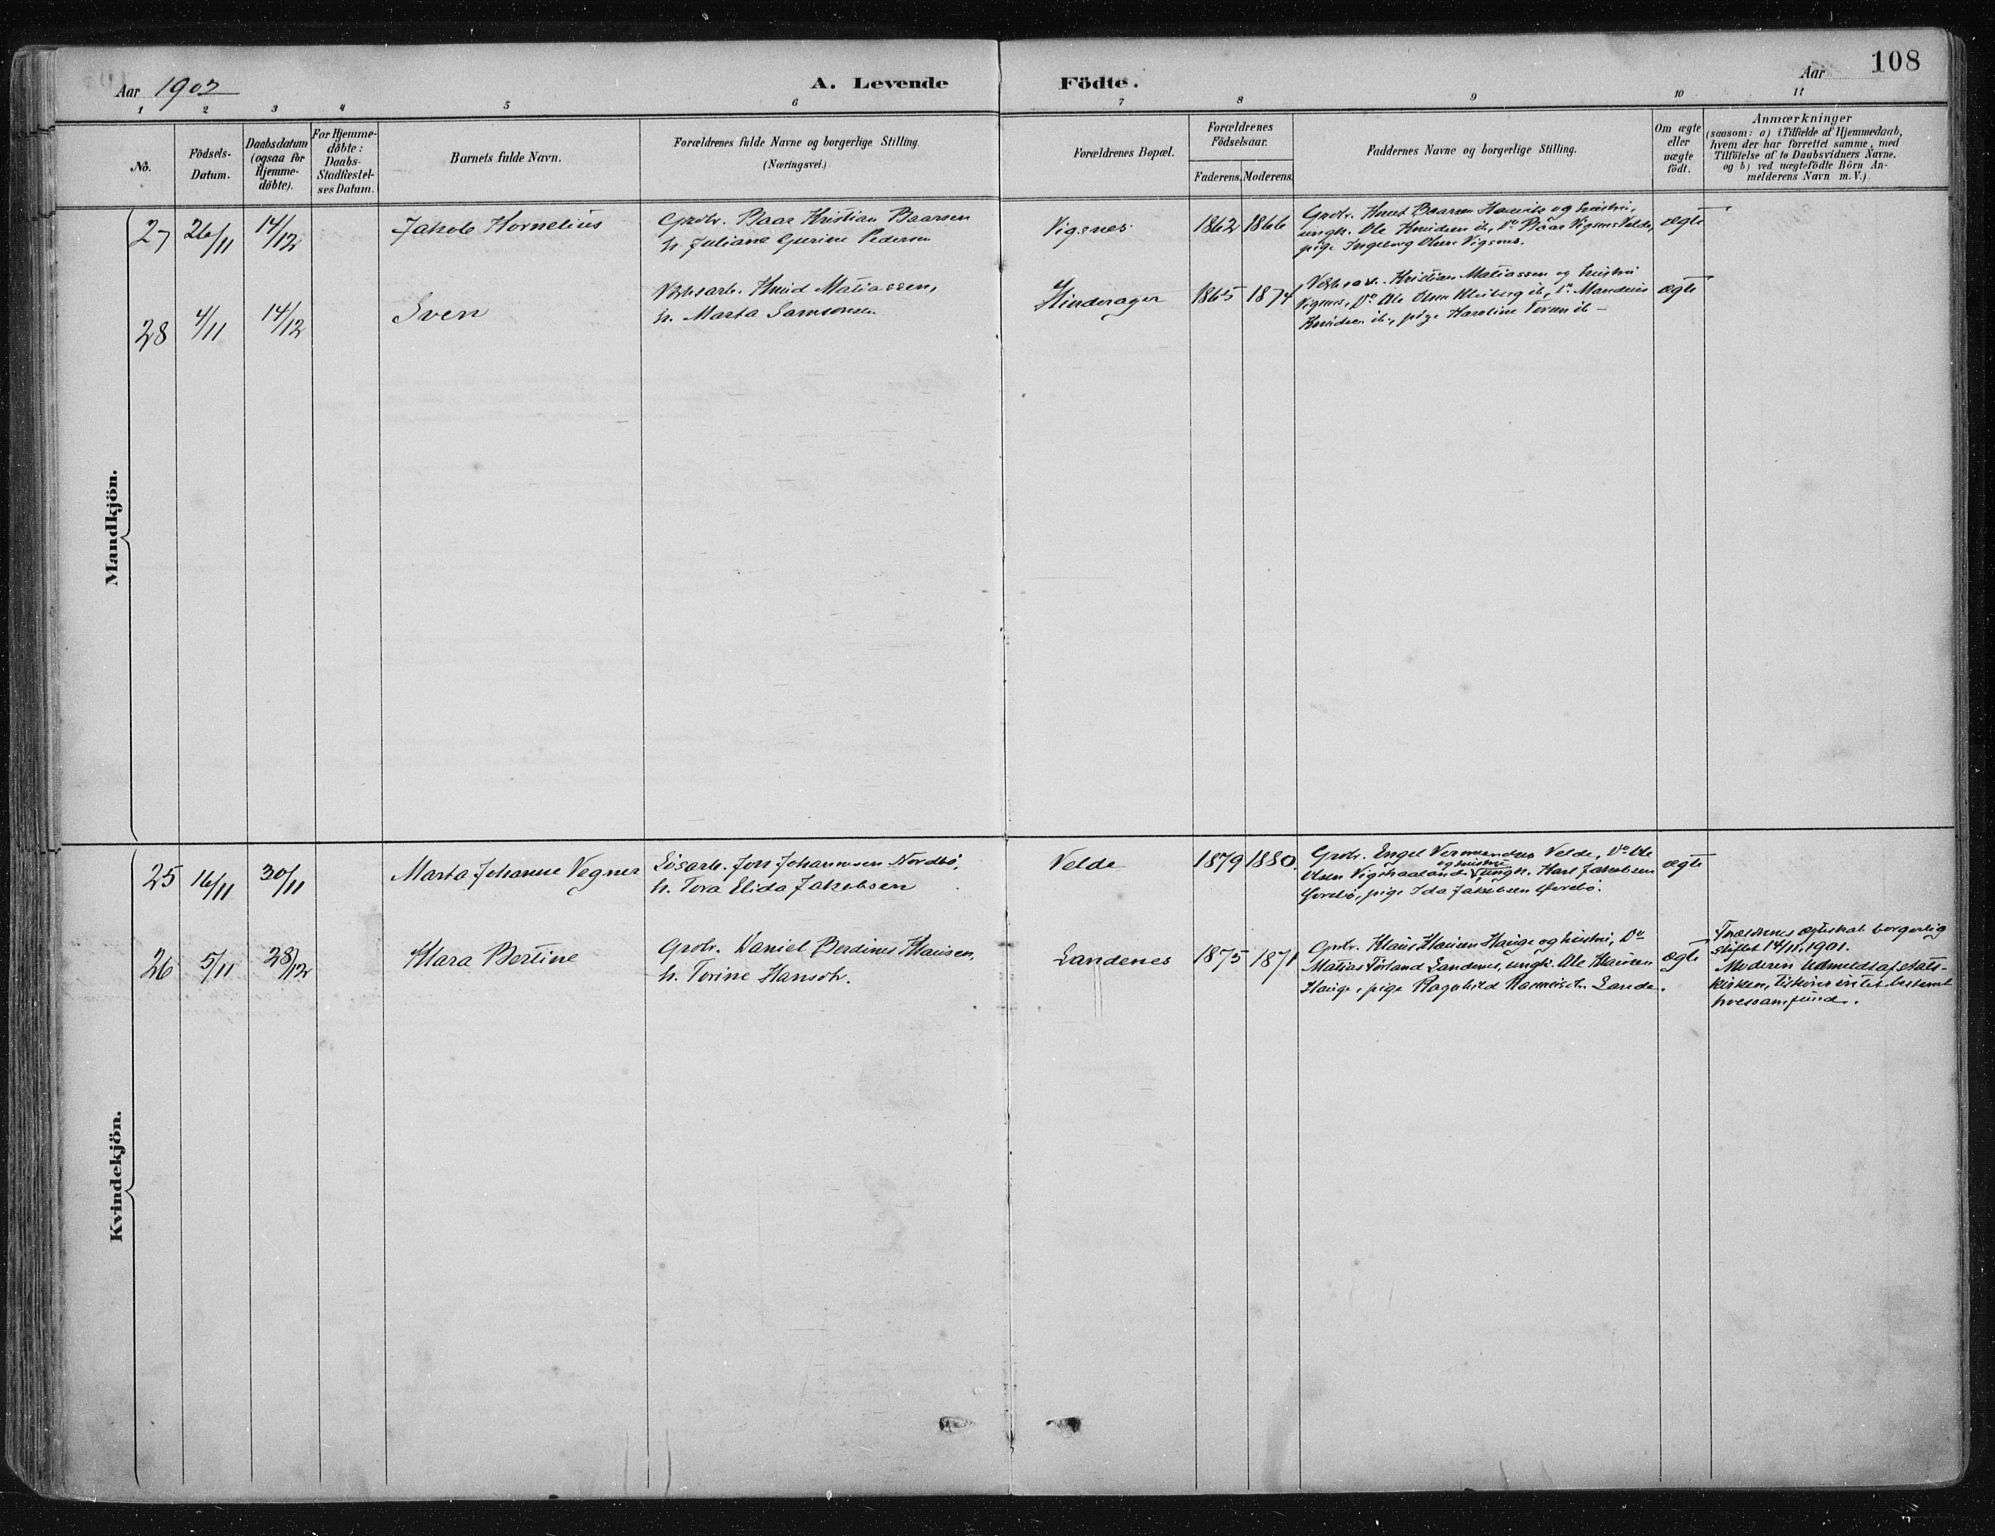 108
Aar 1902
A. Levende Födte.
Aar
1 2 3 4 5 6 7 8 9 10 11
No.
Födsels-
Datum.
Daabsdatum
(ogsaa for
Hjemme-
döbte).
For Hjemme-
döbte:
Daabs-
Stadfæstel-
ses Datum.
Barnets fulde Navn.
Forældrenes fulde Navne og borgerlige Stilling.
(Næringsvei.)
Forældrenes Bopæl.
Forældrenes
Födselsaar.
Faderens. Moderens.
Faddernes Navne og borgerlige Stilling.
Om ægte
eller
uægte
födt.
Anmærkninger
(saasom: a) i Tilfælde af Hjemmedaab,
hvem der har forrettet samme, med
Tilföielse af to Daabsvidners Navne,
og b) ved uægtefödte Börn An-
melderens Navn m. V.)
Mandkjön.
27 26/11 14/12 Jakob Kornelius
Grdbr. Baar Kristian Baarsen
h. Juliane Gurine Pedersen
Vigsnes 1862 1866
Grdbr. Knut Baarsen og hustru,
ungk. Ole Knudsen ib., Do Baar Vigsnes Velde,
pige Ingeborg Olsen Vigsnes.
ægte
28 4/11 14/12 Sven
Knud Matiassen,
h. Marta Samsonsen
Hinderager 1865 1874
Kristian Matiassen og hustru
Vigsnes, Do Ole Olsen ib., Do
Knudsen ib., pige Karoline ib
ægte
Kvindekjön.
25 16/11 30/11 Marta Johanne Vegner
Løsarb. Jon Johannesen Nordbö,
h. Tora Elida Jakobsen
Velde 1879 1880.
Grdbr. Engel Velde, Do Ole
og hustru
Olsen Vigshaaland, ungk. Karl Jakobsen
pige Ida Jakobsen
ægte
26 5/11 28/12 Klara Bertine
Grdbr. Daniel Berdines Klausen,
h. Torine Hansdtr.
Landenes 1875 1871
Grdbr. Klaus Hauge og hustru, Do
Matias Landenes, ungk. Ole
Hauge, pige Ragnhild Lande.
ægte
Forældrenes ægteskab borgerlig
stiftet 14/11 1901.
Moderen udmeldt af stats-
kirken, tilhører intet bestemt
troessamfund.